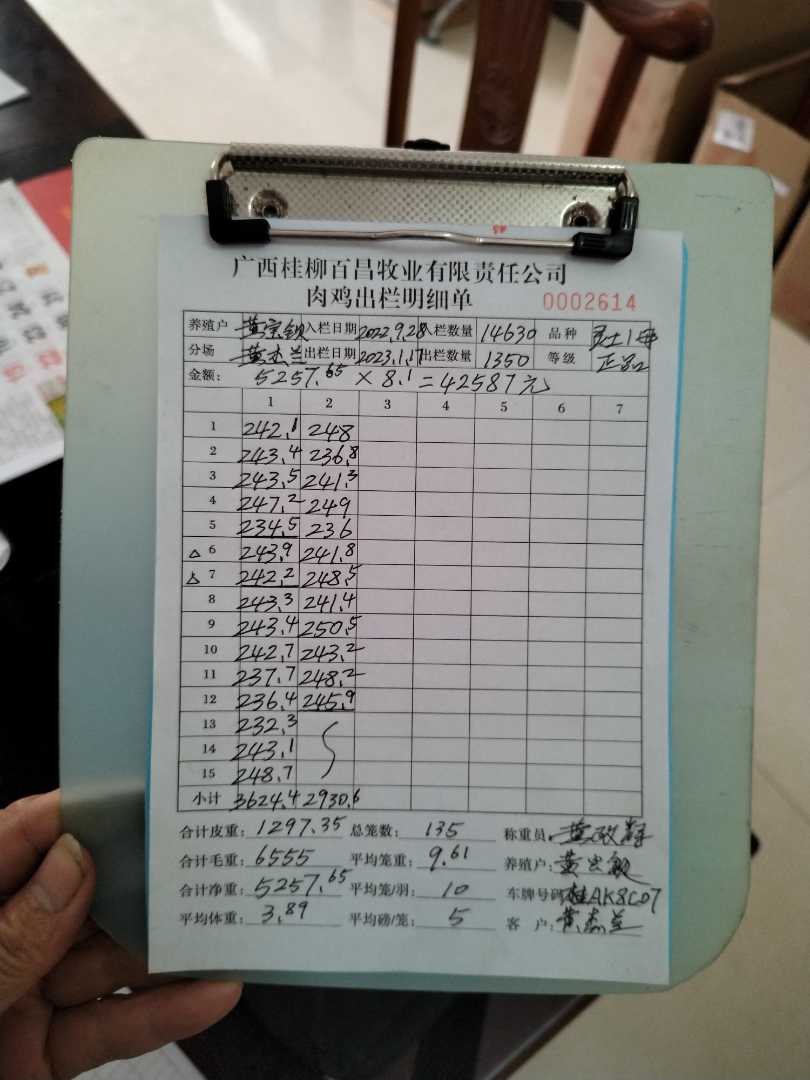 广西桂柳百昌牧业有限责任公司
肉鸡出栏明细单 0002614
养殖户 黄宗敏 入栏日期 2022.9.28 入栏数量 14630 品种
分场 黄杰兰 出栏日期 2023.1.17 出栏数量 1350 等级 正品
金额: 5257.65 × 8.1 = 42587元
1 2 3 4 5 6 7
1 242.1 248
2 243.4 236.8
3 243.5 241.3
4 247.2 249
5 234.5 236
△ 6 243.9 241.8
△ 7 242.2 248.5
8 243.3 241.4
9 243.4 250.5
10 242.7 243.2
11 237.7 248.2
12 236.4 245.9
13 232.3
14 243.1
15 248.7
小计 3624.4 2930.6
合计皮重: 1297.35 总笼数: 135 称重员: 黄
合计毛重: 6555 平均笼重: 9.61 养殖户: 黄宗敏
合计净重: 5257.65 平均笼/羽: 10 车牌号码 桂AK8C07
平均体重: 3.89 平均磅/笼: 5 客 户: 黄杰兰